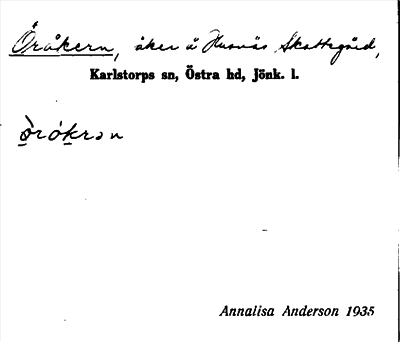 Öråkern, åker å Husnäs Skattegård,
Karlstorps sn, Östra hd, Jönk. l.
ò̱róḵrən
Annalisa Anderson 1935